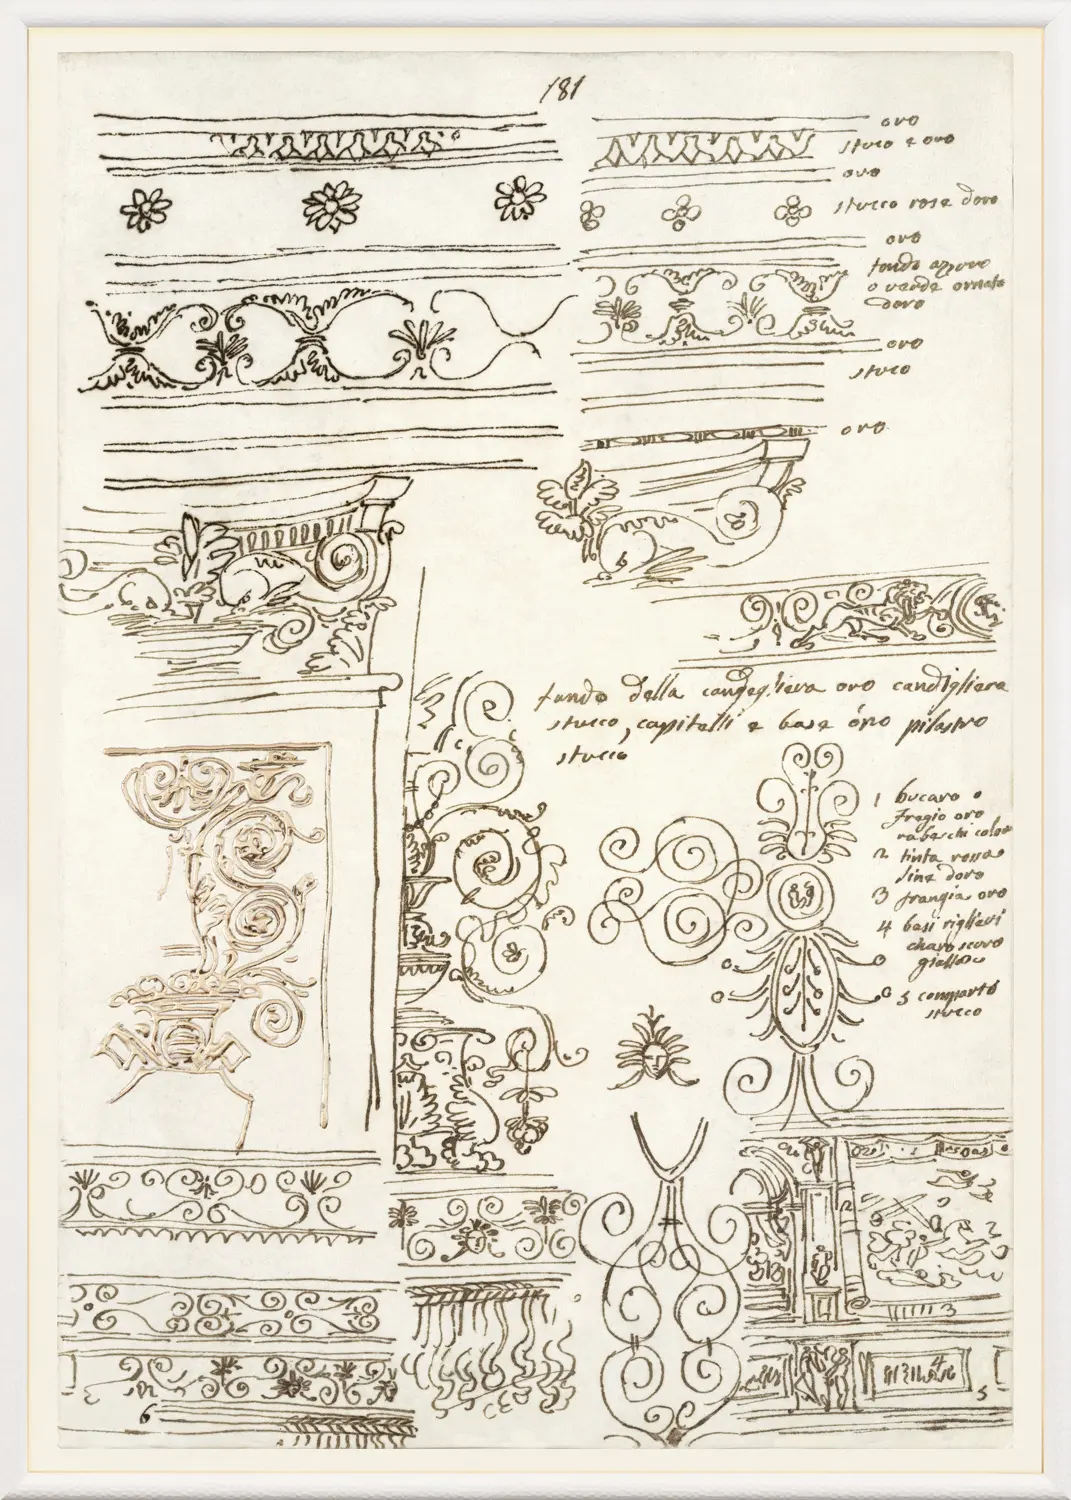 181
oro
stuco e oro
oro
stucco rose doro
oro
fondo azurro
o verde ornato
doro
oro
stuco
oro
fondo della candegliera oro candigliera
stucco, capitelli e base óro pilastro
stucco
1 bucaro o
fregio oro
rabeschi color
2 tinta rossa
line doro
3 frangia oro
4 basi riglievi
charo scuro
giallo
5 comparto
stucco
2
3
4
5
6